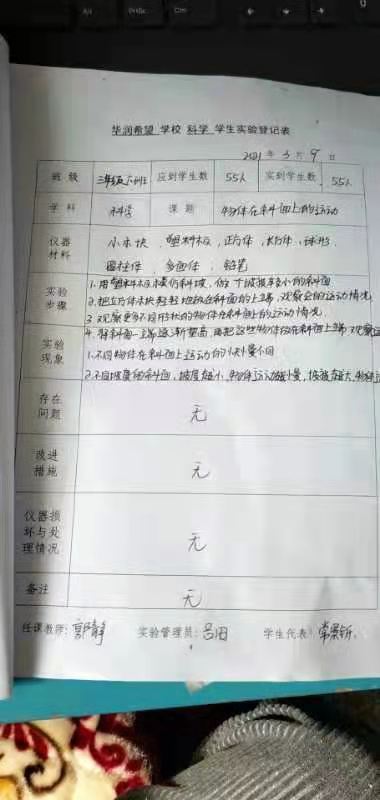 华润希望 学校 科学 学生实验登记表
2021 年 3 月 9 日
班 级 三年级六班 应到学生数 55人 实到学生数 55人
学 科 科学 课 题 物体在斜面上的运动
仪器材料 小木块 塑料板 正方体 长方体 球形
圆柱体 多面体 铅笔
实验步骤 1.用塑料板模仿斜坡,做个坡度较小的斜面
2.把正方体木块轻轻地放在斜面的上端,观察它的运动情况
3.观察更多不同形状的物体在斜面上的运动情况
4.将斜面一端逐渐垫高,再把这些物体放在斜面上端,观察运
实验现象 1.不同物体在斜面上运动的快慢不同
2.不同坡度的斜面,坡度越小,物体运动越慢,坡度越大,物体运
存在问题 无
改进措施 无
仪器损坏与处理情况 无
备注 无
任课教师:郭静 实验管理员:吕田 学生代表: